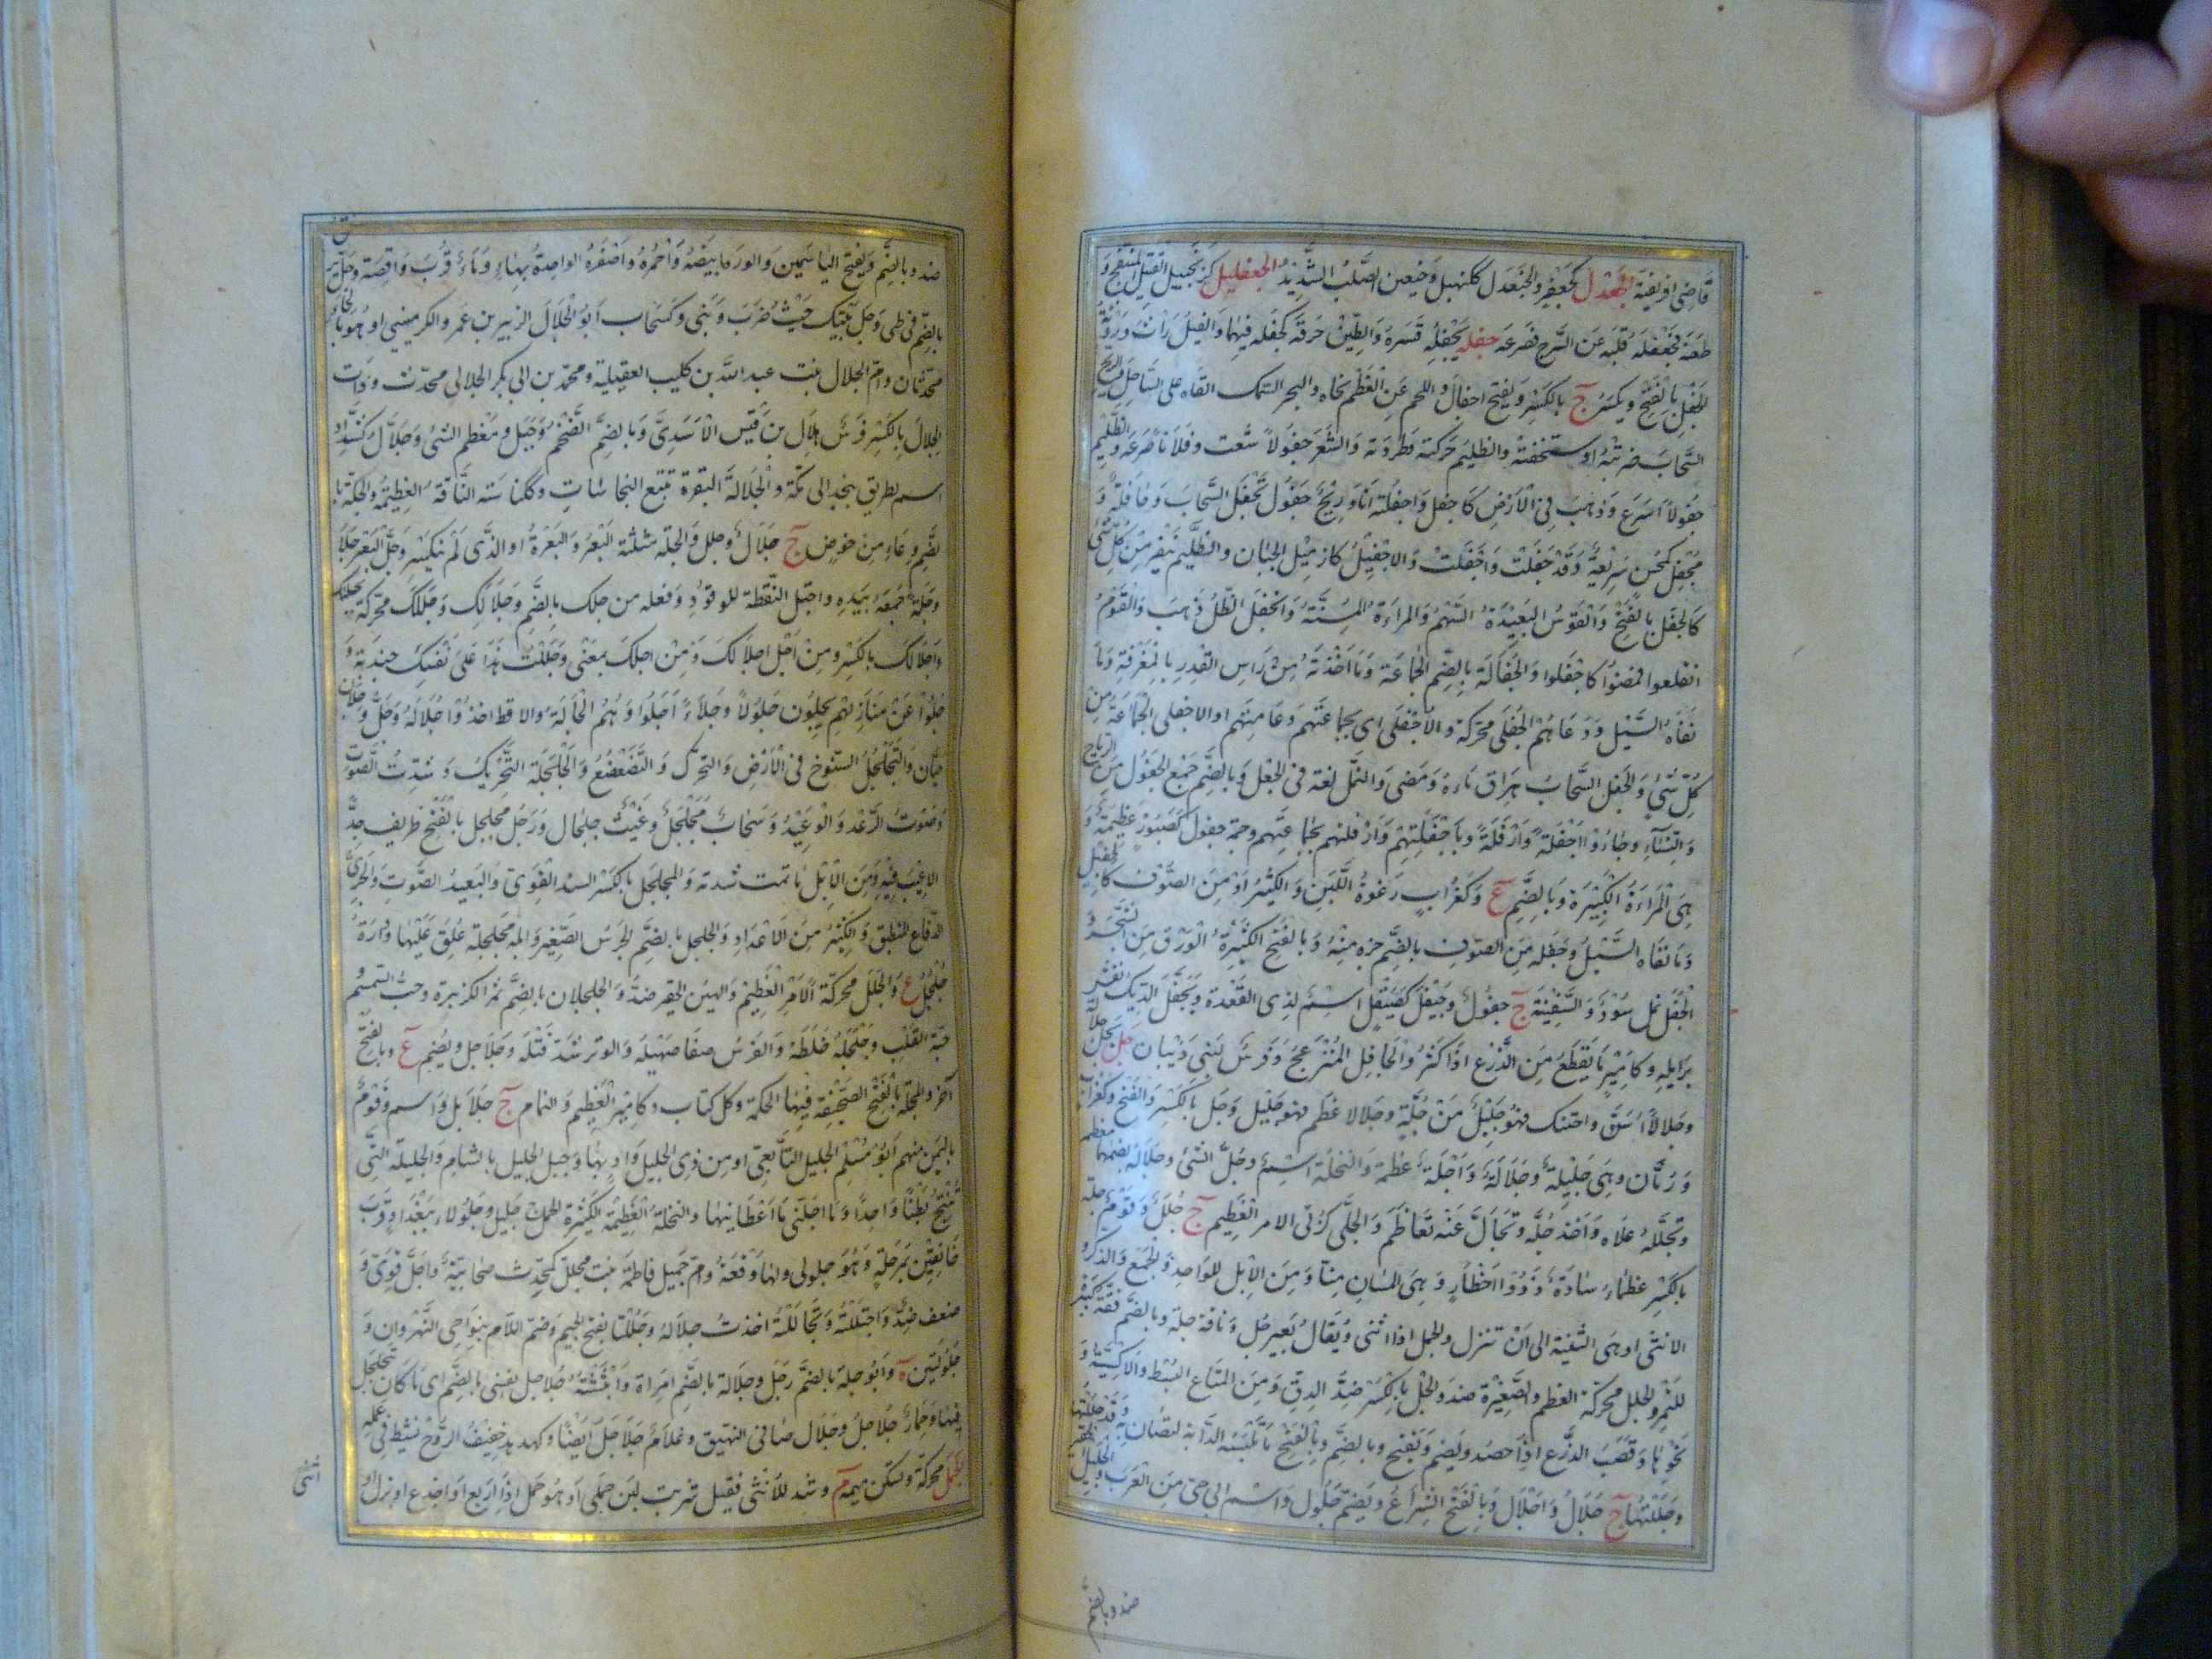 قَاضِى اِفريقيَة الجَعْدَلُ كجَعْفَرٍ والجَنَعْدَل كَكَنَهبل وَخبعين الصُّلْبُ الشَّدِيْدُ الجعفليل كزنجبيل القَتِيْل المُنْتَفِخُ وَ
طعَنَهُ فجَعْفَلَهُ قَلَبَهُ عَنِ السَّرجِ فَصَرَعَهُ جفله يَجْفِلُهُ قَشَرَهُ وَالطِّيْنَ جَرَفَهُ كجَفَّلَه فيهِمَا وَالفِيْلُ رَاثَ وَرَوْثُهُ
الجِفْل بالفَتْحِ وَيُكسَرُ ج بالكَسْرِ وَيفتح اجفال واللحم عَنِ العَظْم نحاه والبحر السَّمك القَاه على السَّاحِل وَالرِّيْح
السَّحَابَ ضربَتْهُ اوِ استخفتْه والظليم حَركته وَطردته وَالشَّعَر جفُولاً شَعث وَفلاناً صَرَعَه وَالظَّلِيْم
جفُولاً اَسْرَعَ وَذهَبَ فِى الاَرْضِ كَاجفل وَاجفَلْته اَنَا وَرِيْحٌ جَفُوْل تَجْفِل السَّحابَ وَجَافلَةٌ وَ
مُجْفِل كمُحْسِن سَرِيْعَة وَقَدْ جَفَلَتْ وَاَجْفَلَتْ وَالاِجْفِيْلُ كازمِيْل الجَبَان والظَّلِيْم يَنْفِر مِنْ كُلِّ شَىْءٍ
كَالجفل بالفَتْحِ وَالقَوْسُ البَعِيْدَةُ السَّهْمِ وَالمَرأةُ المُسِنَّةُ وَانْجَفَلَ الظِّلُّ ذَهَبَ وَالقَوْمُ
انقلعوا فمضوا كاجْفَلوا وَالجُفَالَة بِالضَّمِ الجَمَاعَة وَمَا اَخَذْتَهُ مِنْ رَاسِ القِدْرِ بالمِغْرَفَةِ وَمَا
نَفَاهُ السَّيْل وَدَعَاهُمْ الجَفَلَى محَركة وَالاَجْفَلَى اى بجمَاعَتِهم وَعَامتِهم او الاجْفلى الجَمَاعَة مِنْ
كُلِّ شَىءٍ وَالجَفْل السَّحَابُ هرَاق مَاءهُ وَمَضى وَالنَّمْل لغة فى الجَثْل وَبالضَّمِ جَمْع الجَفُوْل مِنَ الرِّيَاحِ
وَالنِّسَاءِ وجَاءُوْا اَجْفَلَةً وَاَزْفَلَةً وبَاَجْفَلَتِهِمْ وَاَزْفَلَتِهم بجَمَاعتِهِم وجمة جفول كَصَبُوْر عَظِيْمَةٌ وَ
هِىَ المَرأةُ الكَبِيْرَة وَبالضَّمِ ع وَكَغُرَابٍ رَغوَةُ اللَّبَنِ وَالكَثِيْرُ اَوْ مِنَ الصُّوْف كالجَفِيْل
وَمَا نفَاه السَّيْلُ وجَفله مِنَ الصُّوْفِ بِالضَّم جزه مِنْهُ وَبالفَتْح الكَثِيْرَةُ الوَرَق مِنَ الشَّجَر وَ
الجَفْل نمل سُوْدٌ وَالسَّفِيْنَة ج جفُول وَجَيْفَل كَصَيْقَل اِسْمٌ لِذِى القَعْدَة وَتَجَفَّل الدِّيك نَفَّشَ
بَرَايِلَه وَكاميْرٍ مَا يَقْطَعُ مِنَ الزَّرْع اِذَا كَثُرَ وَالجَافِل المُنْزَعِجُ وَفَرسٌ لِبَنِي ذِبْيَان جَلَّ يَجِلُّ جَلاَلَة
وجَلاَلاً اَسَنَّ وَاحتنك فهُوَ جَلِيْلٌ مِنْ جِلَّةٍ وجَلالا عَظُم فهو جَلِيْل وَجَل بِالكَسْرِ وَالفَتْح وَكَغُرَاب
وَرُمَّان وَهِىَ جَلِيْلَةٌ وجُلاَلَةٌ وَاَجَلَّهُ عَظمهُ وَالتجلّة اِسْمٌ وَجُلُّ الشَّئ وجُلاَلُه بضمِهمَا معْظمه
وَتَجَلَّلَهُ علاه وَاَخذ جُلَّه وَتَجَالَّ عَنْه تَعَاظَمَ وَالجُلَّى كَرُبَّى الامر العَظِيْم ج جُلَلٌ وَقَوْمٌ جِلّة
بالكَسْرِ عظمَاءُ سَادَةٌ ذَوُوْا اَخْطَارٍ وَهِىَ المَسَانّ مِنّا وَمِنَ الاِبْلِ للوَاحِدِ وَالجَمْع وَالذكر و
الانثى او هِىَ الثَّنِيَّةُ الى اَنْ تَبْزُل والجمَل اذا اثنى وَيُقَالُ بَعِيْرٌ جُلّ وَنَاقَة جِلة وبالضَّم قُفَّةٌ كَبِيْرَةٌ
للتَمْرِ والجَلل محَركة العَظيم وَالصَّغِيْرَة ضد وَالجُلّ بالكَسْر ضِدُّ الدِّقّ وَمِنَ المَتَاعِ البُسْط والاَكسِيَةُ وَ
نَحْوهَا وَقَصَب الزَّرْع اِذَا حصد وَيُضم وَيُفتح وبالضَّم وبالفَتْح مَا تلْبَسُه الدَّابة لتُصَان بِه وَقَدْ جَلَّلْتهَا
وَجَلَلْتُهَا ج جِلاَلٌ وَاَجْلاَل وَبالفَتْح الشِّرَاعُ وَيُضَمّ جُلُول وَاسْم ابى حىّ مِنَ العَرَب وَالجَلِيْل وَالحَقِيْر
ضد وبالضم
ضد وبالضَّمِ وَيفتح اليَاسَمِين وَالوردَ ابيضه وَاَحْمرُهُ وَاَصْفَرُهُ الوَاحِدَةُ بِهَاءٍ وَمَاءٌ قُرْبَ وَاقِصَة وجَلّ بن حق
بالضِّم فى طى وَجَل بَيْتِك حَيْثُ ضَرَبَ وَبَنَى وكسَحَاب اَبُو الجَلاَل الزبير بن عمر والكرمينيى او هُوَ بالحاء
محدّثان وَامّ الجلال بنت عبد اللّه بن كليب العقيلية ومحمّد بن ابى بكر الجلالى محدّث وَذَات
الجِلاَل بالكَسْرِ فرَسُ هِلاَل بن قَيْس الاَسَدِىّ وَبالضَّمِّ الضَّخْمُ وَجَبَل وَمُعْظم الشَّئ وَجَلاَّل كشَدَّاد
اسم لطريق نجد الى مكّة وَالجلالَةُ البَقَرَة تتبع النجَاسَاتِ وَكثمامَة النَّاقَةُ العَظِيْمَةُ وَالجلة بال
ضَّمِ وعَاءٍ مِنْ خُوْصٍ ج جِلاَلٌ وجلل وَالجلة مثلثة البَعْرُ وَالبَعْرَةُ او الَّذى لَمْ يَنْكَسِر وَجَلَّ البَعْر جَلاَّ
وَجَلَّة جَمَعَهُ بِيَدِه وَاجتل التقطه للوقودِ وَفعله من جلك بالضَّمِ وجَلاَلك وَجَللك محَركة وَتجلتك
وَاجلاَلك بِالكَسْرِ وَمِنْ اَجل اجلالك وَمِنْ اجلك بمعنًى وَجَلَلْتَ هَذَا عَلَى نَفْسِكَ جنيتَه وَ
جلُوْا عَنْ مَنَازِلِهِم يَجِلُّون جُلُوْلاً وَجَلاًّ اَجلَوْا وَهُمُ الجَالَةُ وَالاقط اخذوْا جُلاَلَهُ وَجَلّ وَجَلاَّن
حَيَّان وَالتَّجَلْجُلُ السؤخ فى الاَرْضِ وَالتحَرّك وَالتَّضَعْضُعُ وَالجَلْجَلَة التَّحْرِيْك وَشدّت الصَّوْت
وَصَوْتُ الرَّعْد وَالوَعِيْدُ وَسَحَابٌ مُجَلْجِلٌ وَغَيْثٌ جلجَال وَرَجُل مُجلجل بالفَتْح ظريف جِدًّا
لا عَيْبَ فِيْه وَمِنَ الاِبْل مَا تمت شدته وَالمجلجِل بالكَسْر السيّد القَوِىّ وَالبَعِيْدُ الصَّوْتِ وَالجَرِىُّ
الدَّفاع المنطيق وَالكَثِيْرُ مِنَ الاَعْدَادِ وَالجلجل بالضَّم الجَرَسُ الصَّغِيْر وَابل مجَلجلة عُلِقَ عَلَيْهَا وَدَارَةُ
جُلْجُلٍ ع وَالجَلل محركة الاَمْرُ العَظِيْم وَالهيّن الحَقِر ضدّ وَالجلجلان بالضَّم ثمر الكزبرة وَحبُّ السّمسم و
حَبَّةُ القَلْبِ وَجَلْجَلَهُ خَلَطَهُ وَالفَرَسُ صفَا صَهْيلَه وَالوتر شدّ فَتْلَه وجَلاَجل وَيُضم ع وَبالفَتْح
آخر وَالمجلة بالفَتْح الصَّحِيْفَة فِيْهَا الحكمة وكل كتاب وَكامِيْر العَظِيم وَالثمام ج جلاَئل وَاسم وَقَوْمٌ
باليَمن مِنهم اَبُوْ مُسْلِم الجليل التَّابِعِىّ او من ذِى الجليل وَادٍ بهَا وَجبل الجليل بالشام وَالجليلة التِّى
نُتِجَتْ بَطْنًا وَاحِدًا وَمَا اجَلّنى مَا اَعْطَانِيْهَا وَالنخلة العَظِيْمَة الكَثِيْرَة الحمل ج جَلِيل وجَلُولاء ببغْدَادَ قُرْبَ
خَانِقِيْن بَمَرْحَلَةٍ وَهُوَ جلولى وَلهَا وَقْعَةٌ وَامّ جَمِيْل فاطمَة بنت مجلّل كمحدِّث صحَابيّة وَاجَلَّ قوِىَ وَ
ضعف ضِدٌّ وَاجتلَلْتُهُ وَتَجَالَلْتُهُ اخذتُ جلاَله وَجَلُلْتَا بفتح الجيم وَضم اللاَّم بنواحى النَّهْرَوان وَ
جَلُوْلَتَيْن ة وَاَبُوْ جلة بالضمّ رَجُل وجلاَلة بالضّم امرأة وَابْثَثْتُه جُلاجل نفسى بالضّم اى مَا كَان يتجلجل
فِيْهَا وَحِمَارٌ جُلاَجلٌ وجلاَل صَافى النَهيق وَغلامٌ جُلاَجل ايضًا وكهدهد خفِيْفُ الرُّوْح نشيط فى عَمَله
الجمل محَركة وَتسكن ميمه م وشذ للاُنْثى فقيل شَربت لبَن جملى اَو هُوَ جَمل اِذا ارَبع اَو اجذع او بزل او
اثنى